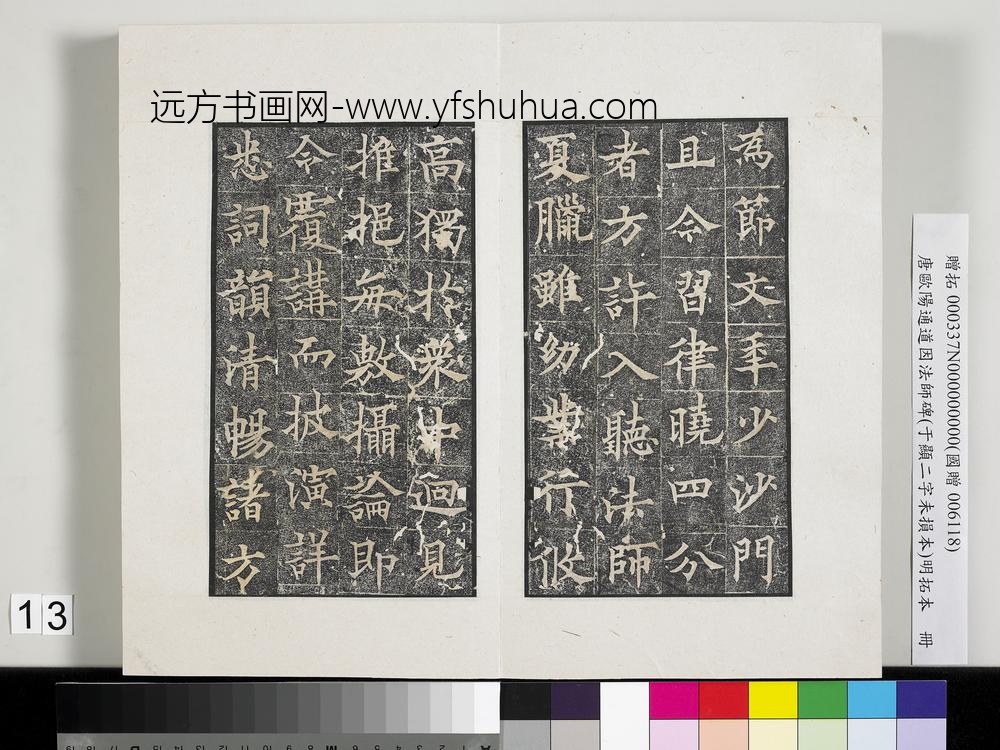 远方书画网-www.yfshuhua.com
為節文年少沙門
且令習律曉四分
者方許入聽法師
夏臘雖幼業行攸
高獨於衆中迥見
推挹每敷攝論即
令覆講而披演詳
悉詞韻清暢諸方
贈拓 000337N000000000(國贈 006118)
唐歐陽通道因法師碑(于顯二字未損本)明拓本 冊
13